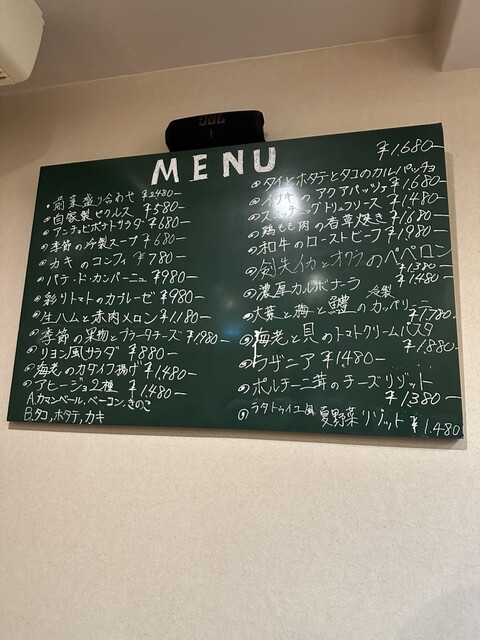 JBL
MENU
・前菜盛り合わせ ¥2480-
・自家製ピクルス ¥580-
・アンチョビポテトサラダ ¥680-
・季節の冷製スープ ¥680-
・カキのコンフィ ¥780-
・パテ・ド・カンパーニュ ¥980-
・彩りトマトのカプレーゼ ¥980-
・生ハムと赤肉メロン ¥1180-
・季節の果物とブラータチーズ ¥1,980-
・リヨン風サラダ ¥880-
・海老のカダイフ揚げ ¥1,480-
・アヒージョ2種 ¥1,480-
A.カマンベール,ベーコン,きのこ
B.タコ,ホタテ,カキ
¥1,680-
・タイとホタテとタコのカルパッチョ
・イサキのアクアパッツァ ¥1,680-
¥1480-
・鶏もも肉の香草焼き ¥1,680-
・和牛のローストビーフ ¥1980-
・剣先イカとオクラのペペロン
¥1,380-
・濃厚カルボナーラ ¥1480-
・大葉と梅と鱧の冷製カッペリーニ
¥1,780-
・海老と貝のトマトクリームパスタ
¥1,880-
・ラザニア ¥1,480-
・ポルチーニ茸のチーズリゾット
¥1,380-
・ラタトゥイユ風 夏野菜リゾット ¥1,480-